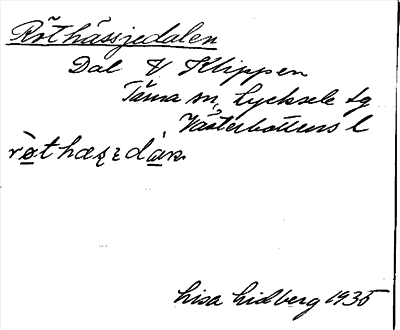 Röthässjedalen
Dal V Klippen
Tärna sn, Lycksele lg
Västerbottens l
ròthæʂɛdàn.
Lisa Lidberg 1935